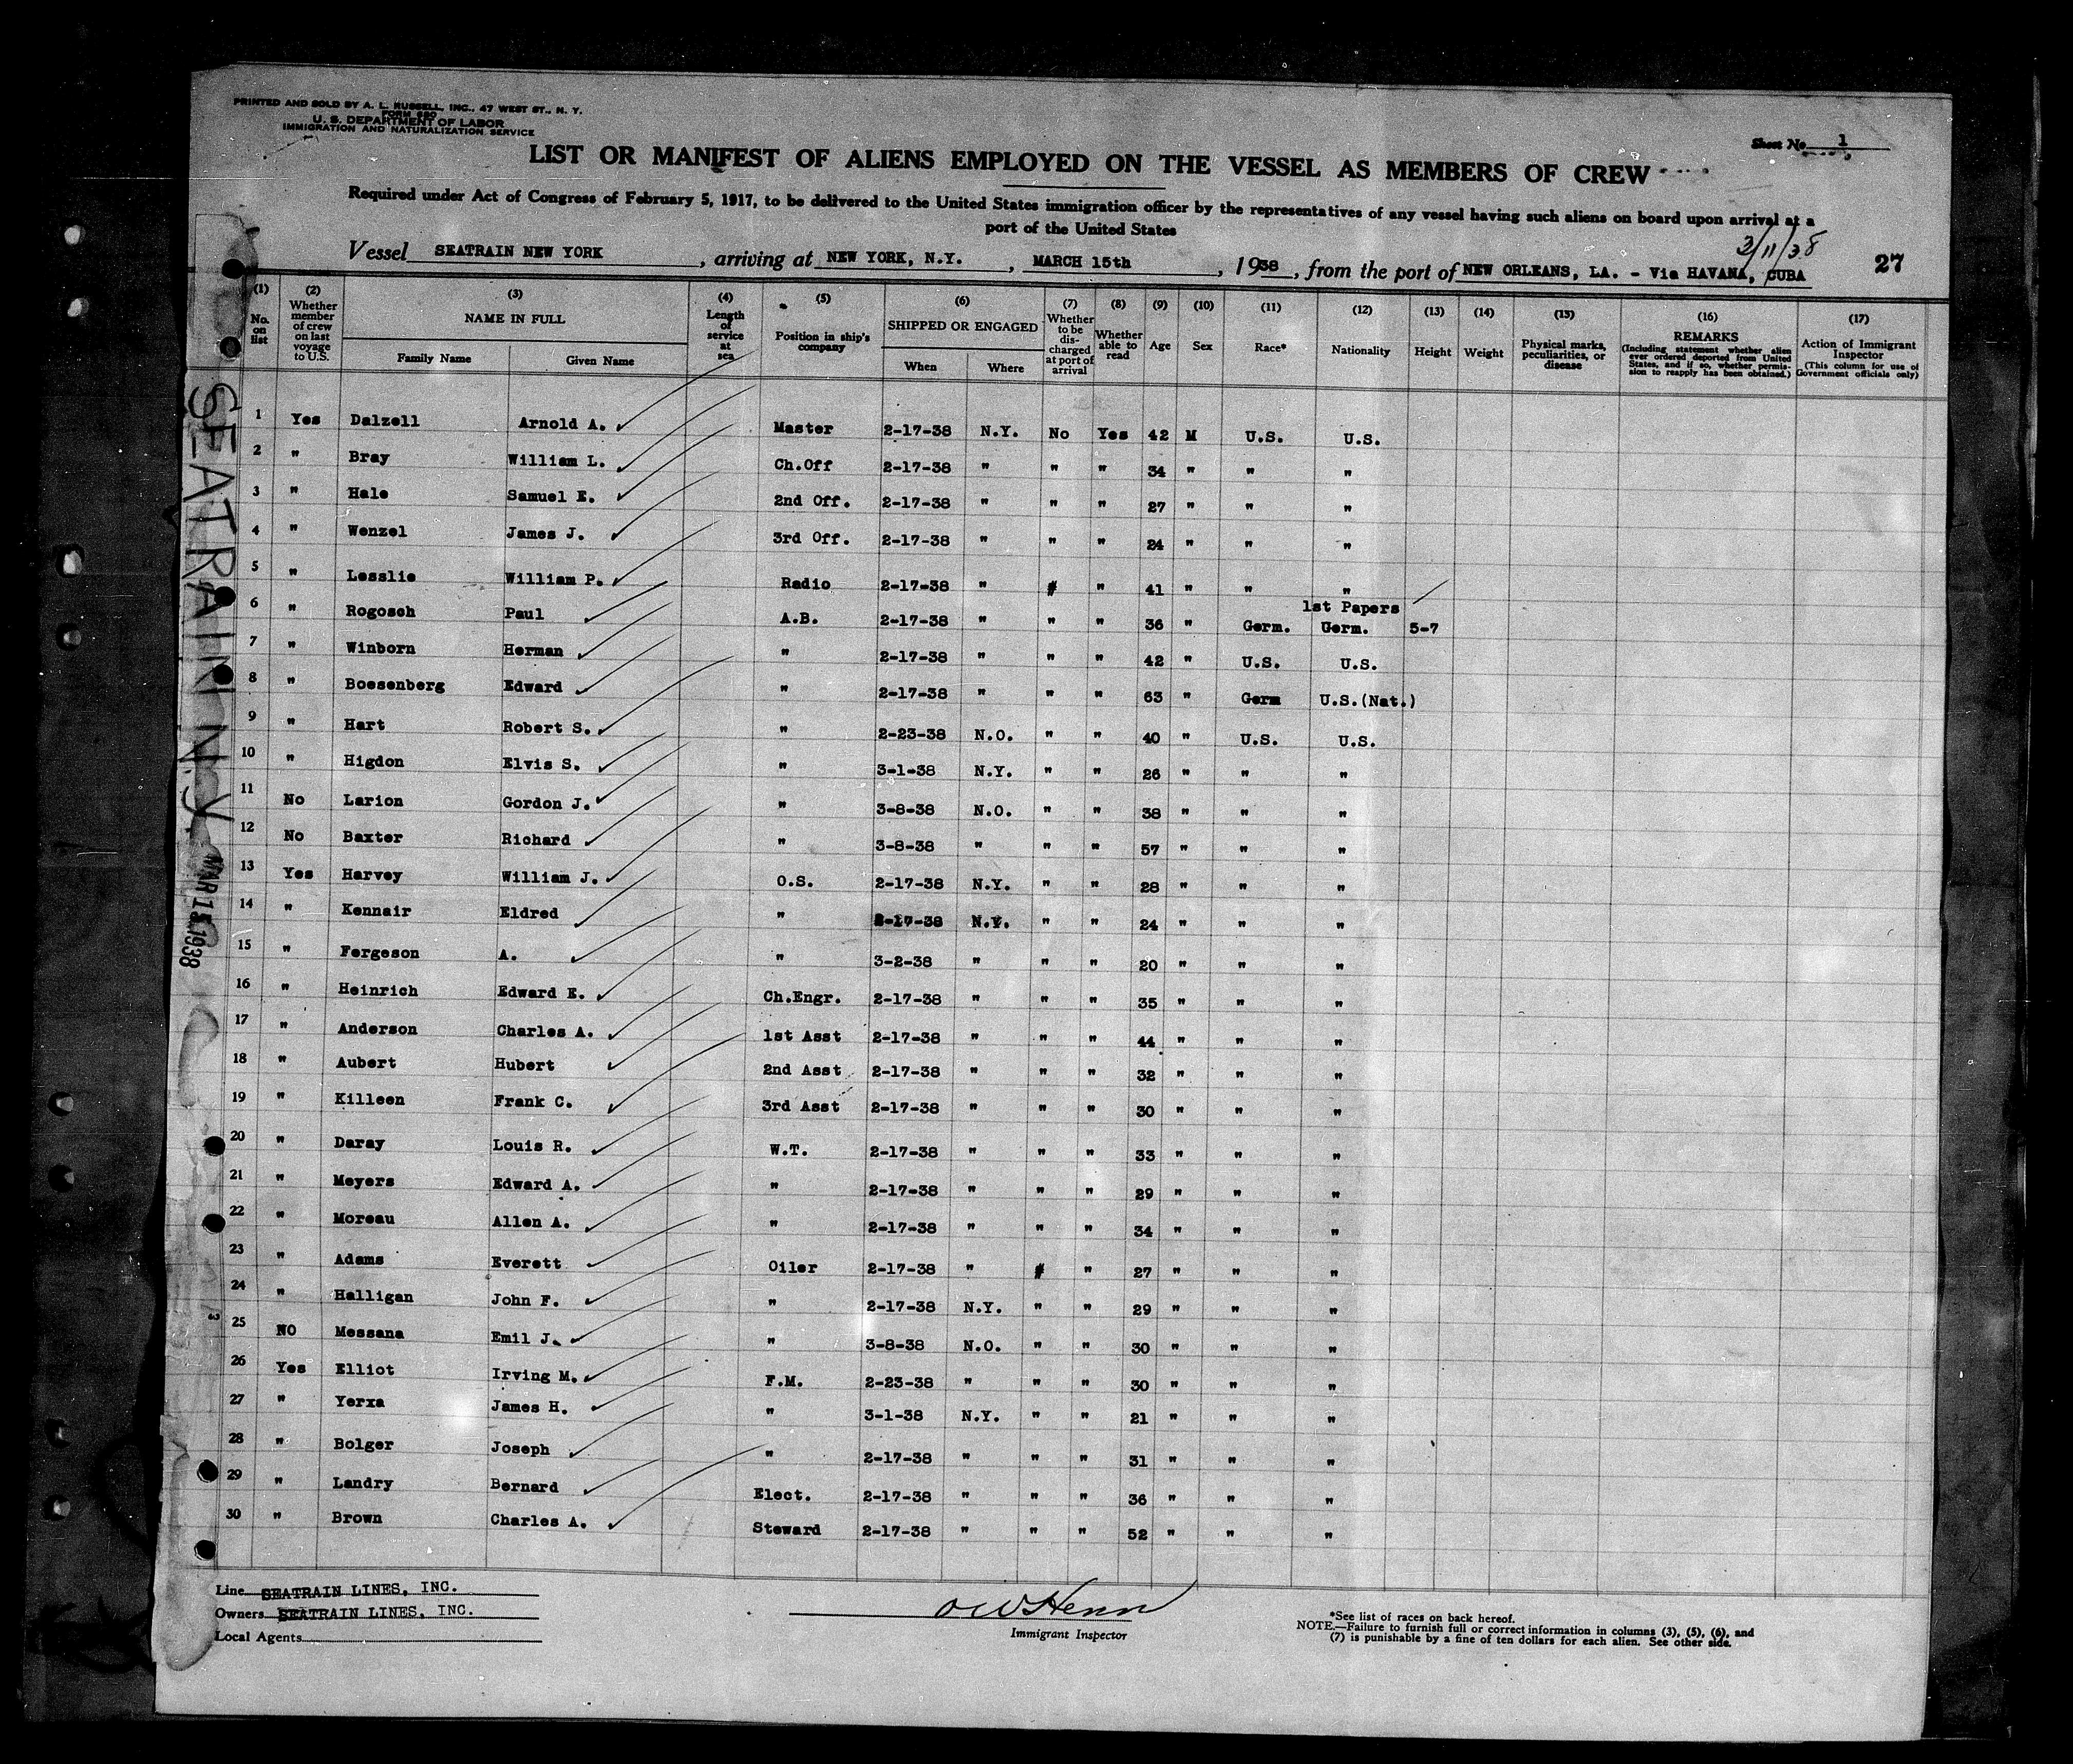 PRINTED AND SOLD BY A. L. RUSSELL, INC., 47 WEST ST., N. Y.
FORM 680
U. S. DEPARTMENT OF LABOR
IMMIGRATION AND NATURALIZATION SERVICE
Sheet No. 1
LIST OR MANIFEST OF ALIENS EMPLOYED ON THE VESSEL AS MEMBERS OF CREW
Required under Act of Congress of February 5, 1917, to be delivered to the United States immigration officer by the representatives of any vessel having such aliens on board upon arrival at a
port of the United States
3/11/38
Vessel SEATRAIN NEW YORK, arriving at NEW YORK, N.Y., MARCH 15th, 1938, from the port of NEW ORLEANS, LA. - Via HAVANA, CUBA 27
(1) No. on list (2) Whether member of crew on last voyage to U.S. (3) NAME IN FULL Family Name Given Name (4) Length of service at sea (5) Position in ship's company (6) SHIPPED OR ENGAGED When Where (7) Whether to be discharged at port of arrival (8) Whether able to read (9) Age (10) Sex (11) Race* (12) Nationality (13) Height (14) Weight (15) Physical marks, peculiarities, or disease (16) REMARKS (Including statement whether alien ever ordered deported from United States, and if so, whether permission to reapply has been obtained.) (17) Action of Immigrant Inspector (This column for use of Government officials only)
1 Yes Dalzell Arnold A. Master 2-17-38 N.Y. No Yes 42 M U.S. U.S.
2 " Bray William L. Ch.Off 2-17-38 " " " 34 " " "
3 " Hale Samuel E. 2nd Off. 2-17-38 " " " 27 " " "
4 " Wenzel James J. 3rd Off. 2-17-38 " " " 24 " " "
5 " Lesslie William P. Radio 2-17-38 " " " 41 " " "
1st Papers
6 " Rogosch Paul A.B. 2-17-38 " " " 36 " Germ. Germ. 5-7
7 " Winborn Herman " 2-17-38 " " " 42 " U.S. U.S.
8 " Boesenberg Edward " 2-17-38 " " " 63 " Germ U.S.(Nat.)
9 " Hart Robert S. " 2-23-38 N.O. " " 40 " U.S. U.S.
10 " Higdon Elvis S. " 3-1-38 N.Y. " " 26 " " "
11 No Larion Gordon J. " 3-8-38 N.O. " " 38 " " "
12 No Baxter Richard " 3-8-38 " " " 57 " " "
13 Yes Harvey William J. O.S. 2-17-38 N.Y. " " 28 " " "
14 " Kennair Eldred " 2-17-38 N.Y. " " 24 " " "
15 " Fergeson A. " 3-2-38 " " " 20 " " "
16 " Heinrich Edward E. Ch.Engr. 2-17-38 " " " 35 " " "
17 " Anderson Charles A. 1st Asst 2-17-38 " " " 44 " " "
18 " Aubert Hubert 2nd Asst 2-17-38 " " " 32 " " "
19 " Killeen Frank C. 3rd Asst 2-17-38 " " " 30 " " "
20 " Daray Louis R. W.T. 2-17-38 " " " 33 " " "
21 " Meyers Edward A. " 2-17-38 " " " 29 " " "
22 " Moreau Allen A. " 2-17-38 " " " 34 " " "
23 " Adams Everett Oiler 2-17-38 " " " 27 " " "
24 " Halligan John F. " 2-17-38 N.Y. " " 29 " " "
25 NO Messana Emil J. " 3-8-38 N.O. " " 30 " " "
26 Yes Elliot Irving M. F.M. 2-23-38 " " " 30 " " "
27 " Yerxa James H. " 3-1-38 N.Y. " " 21 " " "
28 " Bolger Joseph " 2-17-38 " " " 31 " " "
29 " Landry Bernard Elect. 2-17-38 " " " 36 " " "
30 " Brown Charles A. Steward 2-17-38 " " " 52 " " "
SEATRAIN N.Y. MAR 15 1938
Line SEATRAIN LINES, INC.
Owners SEATRAIN LINES, INC.
Local Agents
O W Henn
Immigrant Inspector
*See list of races on back hereof.
NOTE.—Failure to furnish full or correct information in columns (3), (5), (6), and
(7) is punishable by a fine of ten dollars for each alien. See other side.